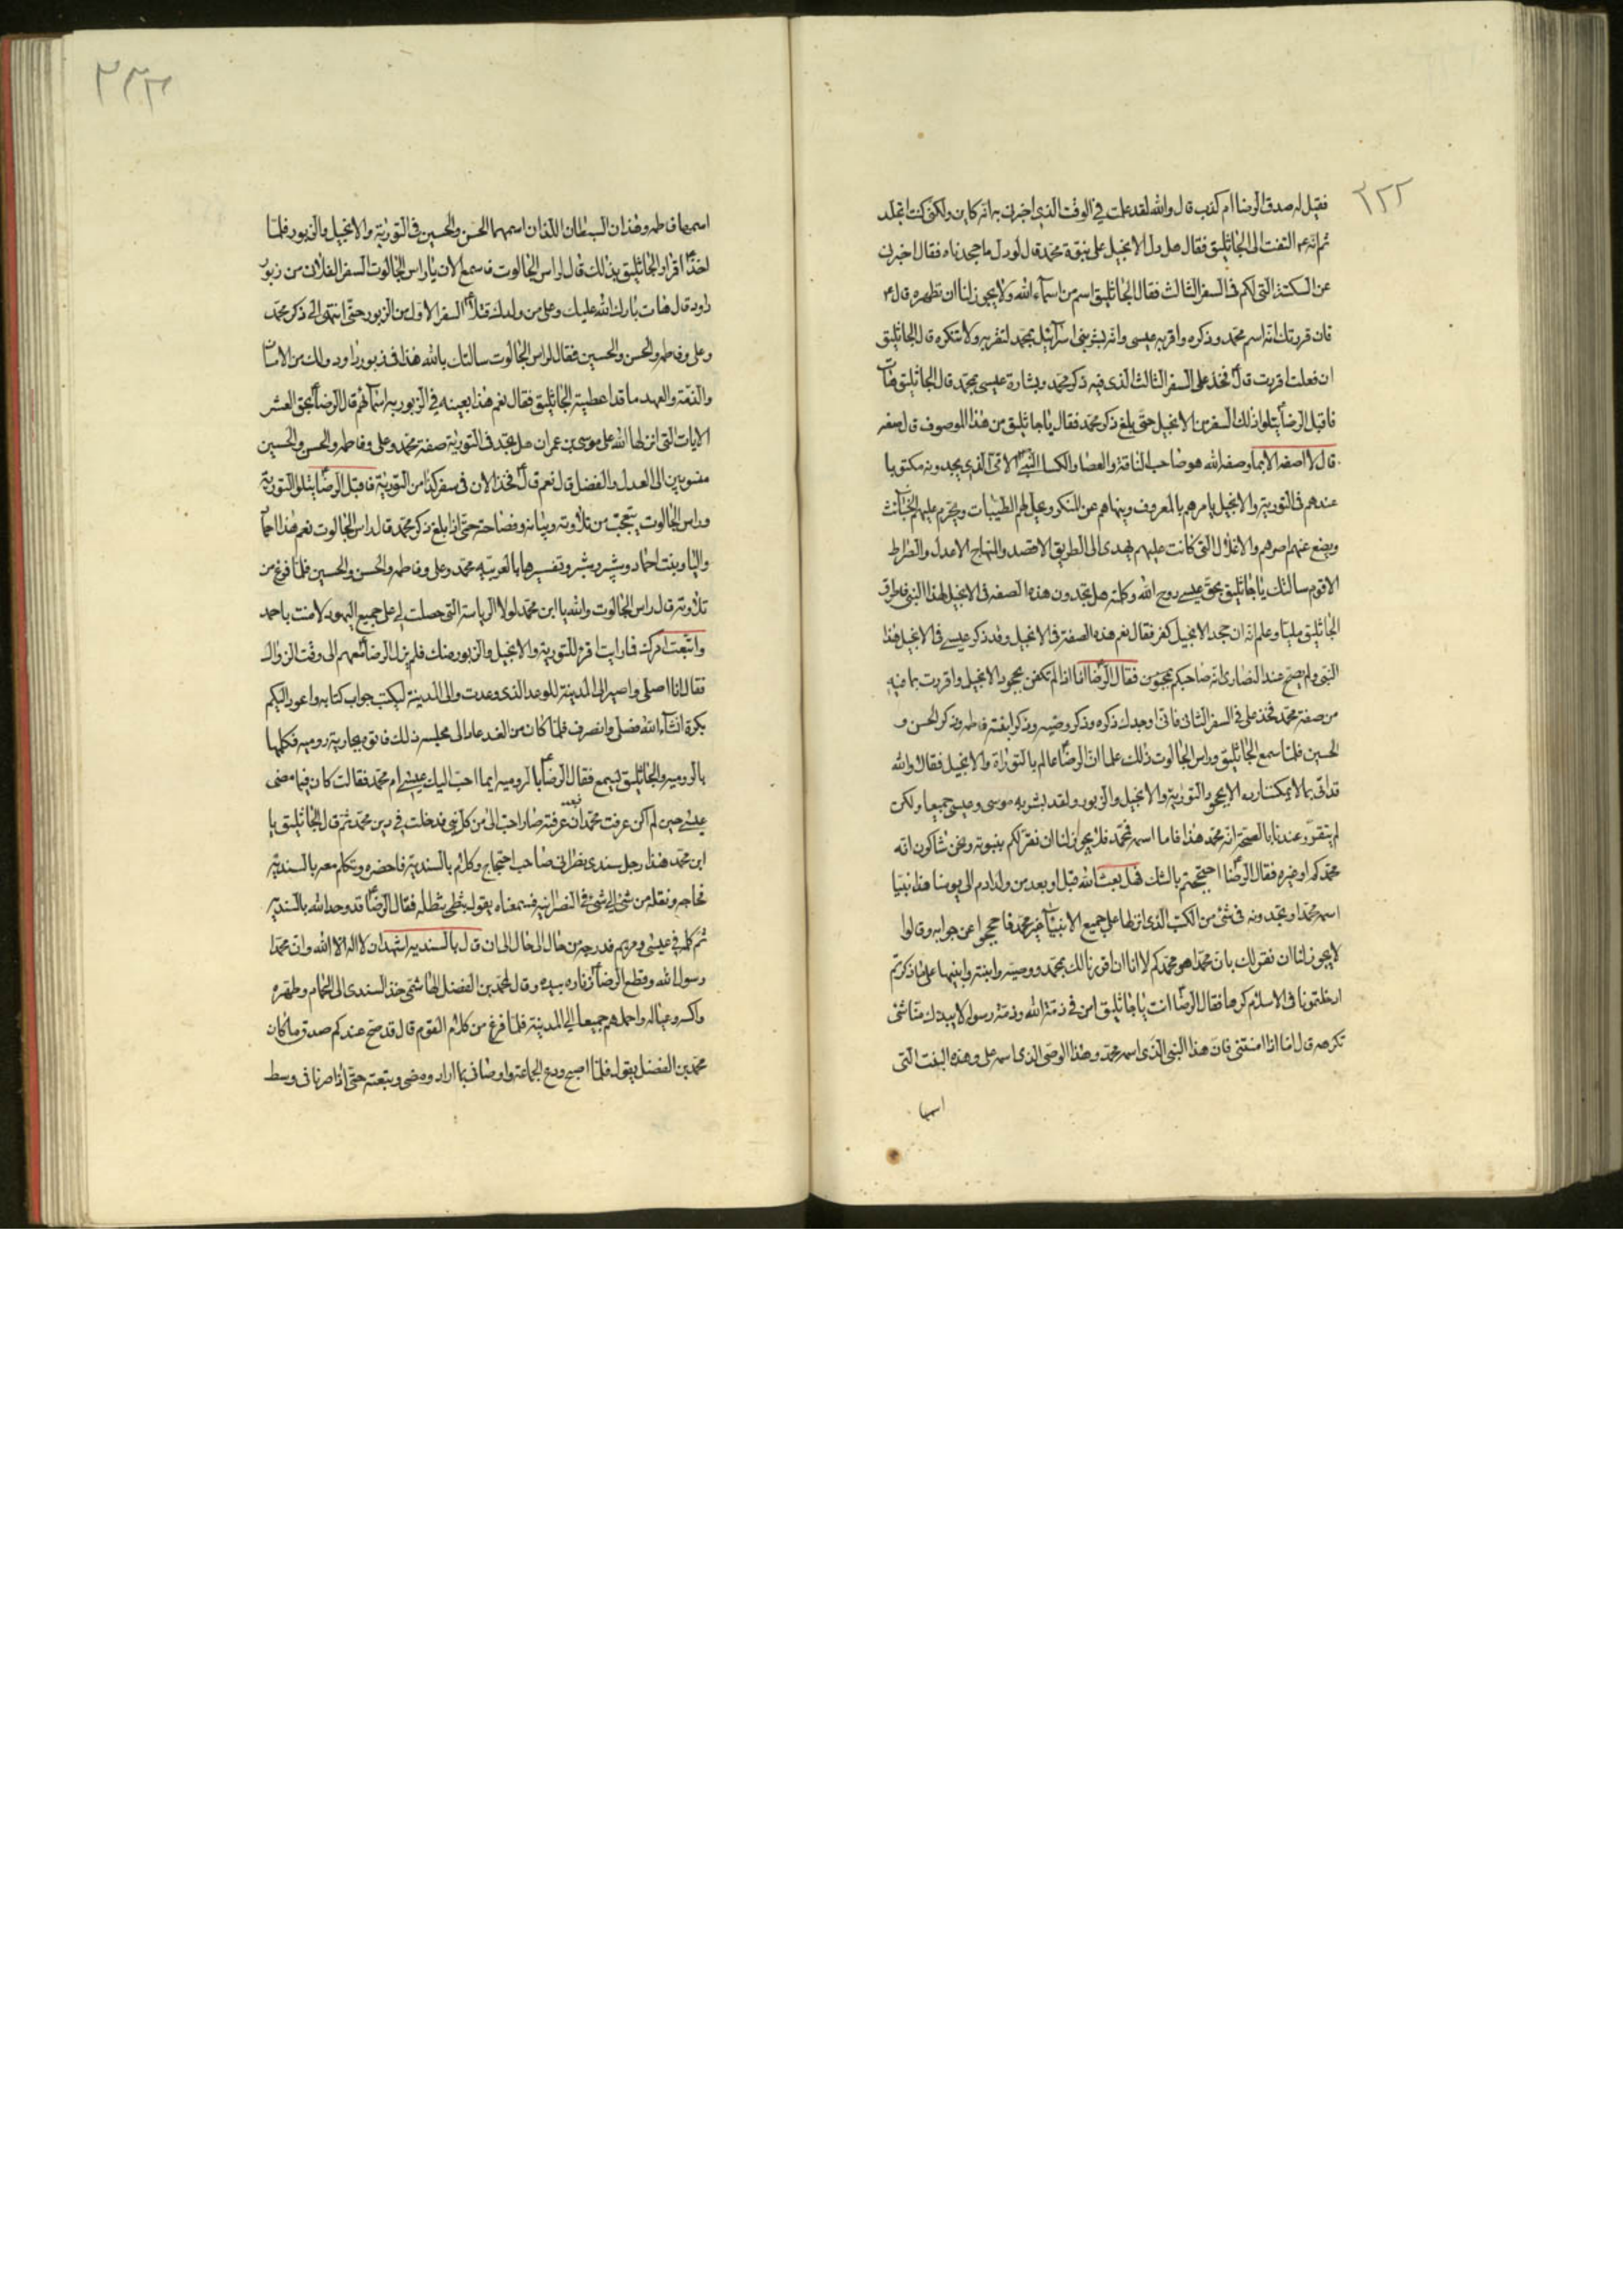 ٢٢٢
فقيل له صدق الرضا ام كذب قال والله لقد علمت في الوقت الذي اخبرني به انه كاين ولكنى كنت اتجلد
ثم انه ع التفت الى الجاثليق فقال هل دل الانجيل على نبوة محمد قال لو دل ما جحدناه فقال اخبرني
عن السكتة التى لكم في السفر الثالث فقال الجاثليق اسم من اسماء الله ولا يجوز لنا ان نظهره قال ع
فان قررتك انه اسم محمد وذكره واقر به عيسى وانه بشر بنى اسرائيل بمحمد لتقر به ولا تنكره قال الجاثليق
ان فعلت اقررت قال فخذ على السفر الثالث الذى فيه ذكر محمد وبشارة عيسى بمحمد قال الجاثليق هات
فاقبل الرضا يتلوا ذلك السفر من الانجيل حتى بلغ ذكر محمد فقال يا جاثليق من هذا الموصوف قال صفه
قال لا اصفه الا بما وصفه الله هو صاحب الناقة والعصا والكسا النبى الامى الذى يجدونه مكتوبا
عندهم فى التورية والانجيل يامرهم بالمعروف وينهاهم عن المنكر ويحل لهم الطيبات ويحرم عليهم الخبائث
ويضع عنهم اصرهم والاغلال التى كانت عليهم يهدى الى الطريق الاقصد والمنهاج الاعدل والصراط
الاقوم سالتك يا جاثليق بحق عيسى روح الله وكلمته هل تجدون هذه الصفه فى الانجيل لهذا النبى فاطرق
الجاثليق مليا وعلم انه ان جحد الانجيل كفر فقال نعم هذه الصفة فى الانجيل وقد ذكر عيسى فى الانجيل هذا
النبى ولم يصح عند النصارى انه صاحبكم فقال الرضا اما اذا لم تكفر بجحود الانجيل واقررت بما فيه
من صفة محمد فخذ على فى السفر الثانى فانى اوجدك ذكره وذكر وصيه وذكر ابنته فاطمه وذكر الحسن و
الحسين فلما سمع الجاثليق وراس الجالوت ذلك علما ان الرضا عالم بالتوراة والانجيل فقالا والله
قد اتى بما لا يمكننا رده الا بجحود التورية والانجيل والزبور ولقد بشر به موسى وعيسى جميعا ولكن
لم يتقرر عندنا بالصحة انه محمد هذا فاما اسمه محمد فلا يجوز لنا ان نقر لكم بنبوته ونحن شاكون انه
محمدكم او غيره فقال الرضا احتججتم بالشك فهل بعث الله قبل او بعد من ولد ادم الى يومنا هذا نبيا
اسمه محمد او تجدونه فى شئ من الكتب الذى انزلها على جميع الانبيا غير محمد فاحجموا عن جوابه وقالوا
لا يجوز لنا ان نقر لك بان محمدا هو محمدكم لانا ان اقررنا لك بمحمد ووصيه وابنته وابنيها على ما ذكرتم
ادخلتمونا فى الاسلام كرها فقال الرضا انت يا جاثليق امن فى ذمة الله وذمة رسوله لا يبدك منا شئ
تكرهه قال اما اذا امنتنى فان هذا النبى الذى اسمه محمد وهذا الوصى الذى اسمه على وهذه البنت التى
اسمها
٢٢٣
اسمها فاطمه وهذان السبطان اللذان اسمهما الحسن والحسين فى التورية والانجيل والزبور فلما
اخذ اقرار الجاثليق بذلك قال لراس الجالوت فاسمع الان يا راس الجالوت السفر الفلان من زبور
داود قال هات بارك الله عليك وعلى من ولدك فتلا السفر الاول من الزبور حتى انتهى الى ذكر محمد
وعلى وفاطمه والحسن والحسين فقال لراس الجالوت سالتك بالله هذا فى زبور داود ولك من الامان
والذمة والعهد ما قد اعطيته الجاثليق فقال نعم هذا بعينه فى الزبور باسمائهم قال الرضا بحق العشر
الايات التى انزلها الله على موسى بن عمران هل تجد فى التورية صفة محمد وعلى وفاطمه والحسن والحسين
منسوبين الى العدل والفضل قال نعم قال فخذ الان فى سفر كذا من التورية فاقبل الرضا يتلوا التورية
وراس الجالوت يتعجب من تلاوته وبيانه وفصاحته حتى اذا بلغ ذكر محمد قال راس الجالوت نعم هذا احماد
واليا وبنت احماد وشبر وشبير وتفسيرها بالعربيه محمد وعلى وفاطمه والحسن والحسين فلما فرغ من
تلاوته قال راس الجالوت والله يا ابن محمد لولا الرياسة التى حصلت لى على جميع اليهود لامنت باحمد
واتبعت امرك فما رايت اقرء للتورية والانجيل والزبور منك فلم يزل الرضا معهم الى وقت الزوال
فقال انا اصلى واصير الى المدينة للوعد الذى وعدت والى المدينة ليكتب جواب كتابه واعود اليكم
بكرة انشاء الله فصلى وانصرف فلما كان من الغد عاد الى مجلسه ذلك فاتوه بجارية روميه فكلمها
بالروميه والجاثليق يسمع فقال الرضا بالروميه ايما احب اليك عيسى ام محمد فقالت كان فيما مضى
عيسى حين لم اكن عرفت محمدا فبعد ان عرفته صار احب الى من كل نبى فدخلت فى دين محمد ثم قال الجاثليق يا
ابن محمد هذا رجل سندى نصرانى صاحب احتجاج وكلام بالسندية فاحضره وتكلم معه بالسندية
فحاجه ونقله من شئ الى شئ فى النصرانيه فسمعناه يقول بثطى ثطله فقال الرضا قد وحد الله بالسنديه
ثم كلمه فى عيسى ومريم فدرجه من حال الى حال الى ان قال بالسنديه اشهد ان لا اله الا الله وان محمدا
رسول الله وقطع الرضا زناره بيده وقال لمحمد بن الفضل الهاشمى خذ السندى الى الحمام وطهره
واكسه وعياله واحملهم جميعا الى المدينة فلما فرغ من كلام القوم قال قد صح عندكم صدق ما كان
محمد بن الفضل يقول فلما اصبح ودع الجماعة واوصانى بما اراد ومضى وتبعته حتى اذا صرنا فى وسط